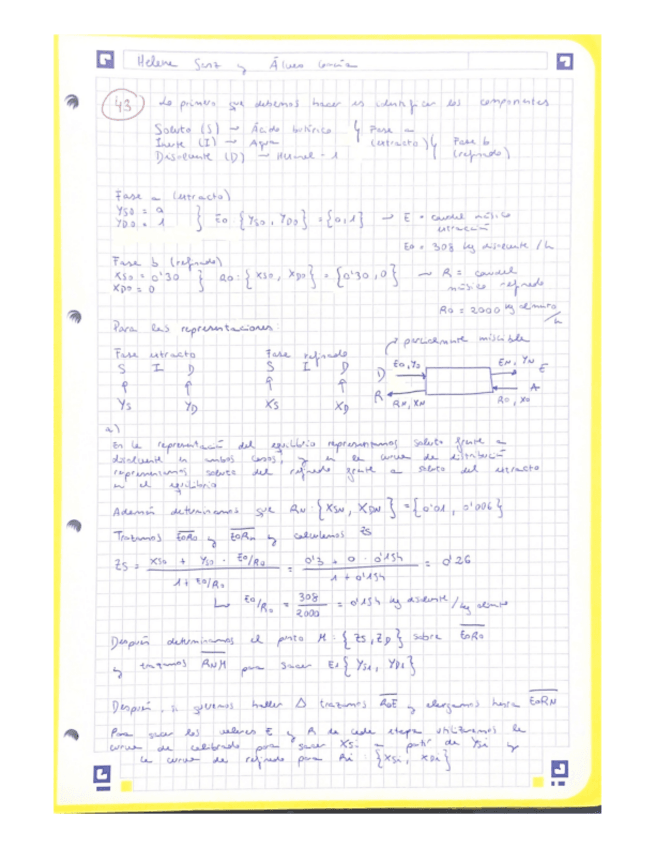 Helena Sanz y Álvaro García
43 Lo primero que debemos hacer es identificar los componentes
Soluto (S) → Ácido butírico } Fase a
Inerte (I) → Agua (extracto) } Fase b
Disolvente (D) → Hexanol - 1 (refinado)
Fase a (extracto)
YS0 = 0
YD0 = 1 } E0 {YS0, YD0} = {0,1} → E = caudal másico
extracción
E0 = 308 kg disolvente / h
Fase b (refinado)
XS0 = 0'30
XD0 = 0 } R0: {XS0, XD0} = {0'30, 0} → R = caudal
másico refinado
R0 = 2000 kg alimento
/h
Para las representaciones
parcialmente miscible
Fase extracto Fase refinado
S I D S I D
YS YD XS XD
D E0, Y0 EN, YN E
R RN, XN R0, X0 A
a)
En la representación del equilibrio representamos soluto frente a
disolvente en ambos casos, y en la curva de distribución
representamos soluto del refinado frente a soluto del extracto
en el equilibrio
Además determinamos que RN: {XSN, XDN} = {0'01, 0'006}
Trazamos E0R0 y E0RN y calculamos ZS
ZS = XS0 + YS0 · E0/R0 / 1 + E0/R0 = 0'3 + 0 · 0'154 / 1 + 0'154 = 0'26
↳ E0/R0 = 308/2000 = 0'154 kg disolvente / kg alimento
Después determinamos el punto M: {ZS, ZD} sobre E0R0
y trazamos RNM para sacar E1 {YS1, YD1}
Después, si queremos hallar Δ trazamos R0E y alargamos hasta E0RN
Para sacar los valores E y R de cada etapa utilizaremos la
curva de calibrado para sacar XSi a partir de YSi y
la curva de refinado para Ri: {XSi, XDi}